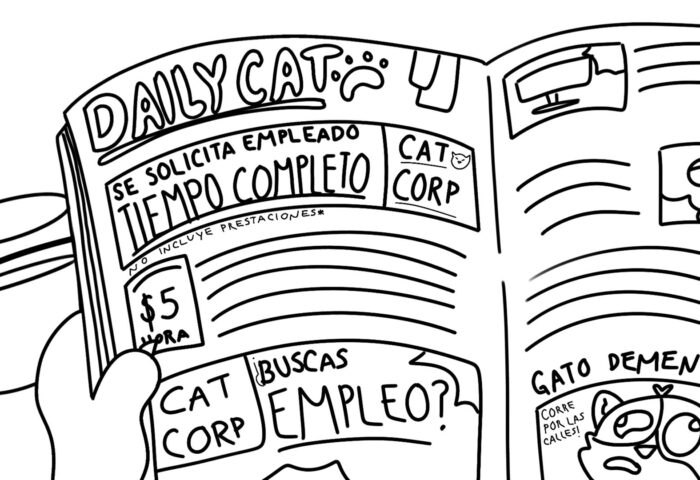 DAILY CAT
SE SOLICITA EMPLEADO
TIEMPO COMPLETO
NO INCLUYE PRESTACIONES*
CAT
CORP
$5
HORA
CAT
CORP
¿BUSCAS
EMPLEO?
GATO DEMEN
CORRE
POR LAS
CALLES!